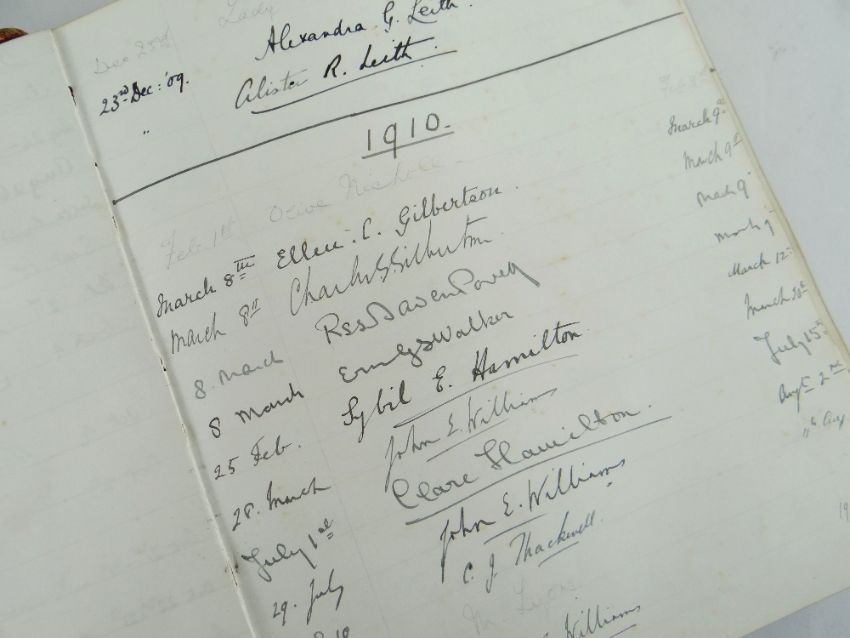 Dec 23rd Lady
23rd Dec: '09. Alexandra G. Leith.
" Alister R. Leith.
1910.
Feb 1st Olive Nicholl
March 8th Ellen. C. Gilbertson. March 9th
March 8th Charles G. Gilbertson. March 9th
8. March March 9
8 March Emily S Walker March 9
25 Feb. Sybil E. Hamilton March 12th
28. March John E. Williams March 30th
July 1st Clare Hamilton. July 15th
29. July John E. Williams Augt 2nd
C. J. Thackwell. Aug
Williams